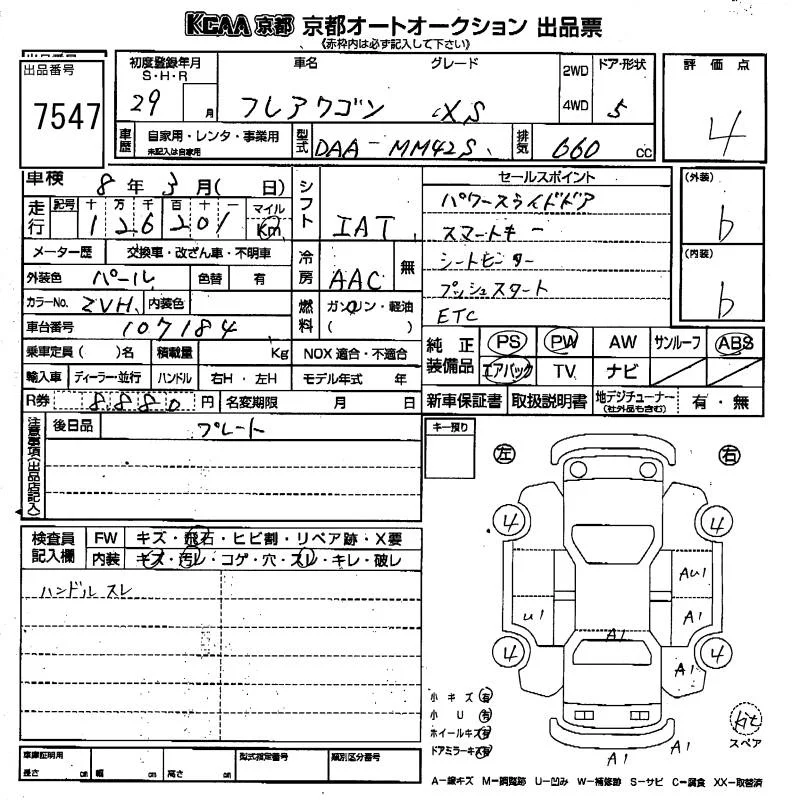 KCAA 京都 京都オートオークション 出品票
《赤枠内は必ず記入して下さい》
出品番号
7547
初度登録年月 S・H・R
29 月
車名 グレード
フレアワゴン XS
2WD
4WD
ドア・形状
5
評価点
4
車歴
自家用・レンタ・事業用
未記入は自家用
型式 DAA-MM42S
排気 660 cc
車検 8年 3月( 日)
走行 記号 十 万 千 百 十 一 マイル
126201 Km
メーター歴 交換車・改ざん車・不明車
外装色 パール 色替 有
カラーNo. ZVH 内装色
車台番号 107184
シフト IAT
冷房 AAC 無
燃料 ガソリン・軽油
( )
セールスポイント
パワースライドドア
スマートキー
シートヒーター
プッシュスタート
ETC
(外装)
b
(内装)
b
乗車定員( )名 積載量 Kg NOX適合・不適合
輸入車 ディーラー・並行 ハンドル 右H・左H モデル年式 年
R券 8880 円 名変期限 月 日
純正装備品
PS PW AW サンルーフ ABS
エアバック TV ナビ
新車保証書 取扱説明書 地デジチューナー (社外品も含む) 有・無
注意事項(出品店記入)
後日品 プレート
キー預り
左 右
検査員記入欄
FW キズ・飛石・ヒビ割・リペア跡・X要
内装 キズ・汚レ・コゲ・穴・スレ・キレ・破レ
ハンドル スレ
4 4
AU1
U1 A1
A1
4 A1 4
小キズ 有
小U 有
ホイールキズ 有
ドアミラーキズ 有
A1 A1
kit
スペア
車庫証明用
長さ cm 幅 cm 高さ cm
型式指定番号 類別区分番号
A－線キズ M－調覧跡 U－凹み W－補修跡 S－サビ C－腐食 XX－取替済